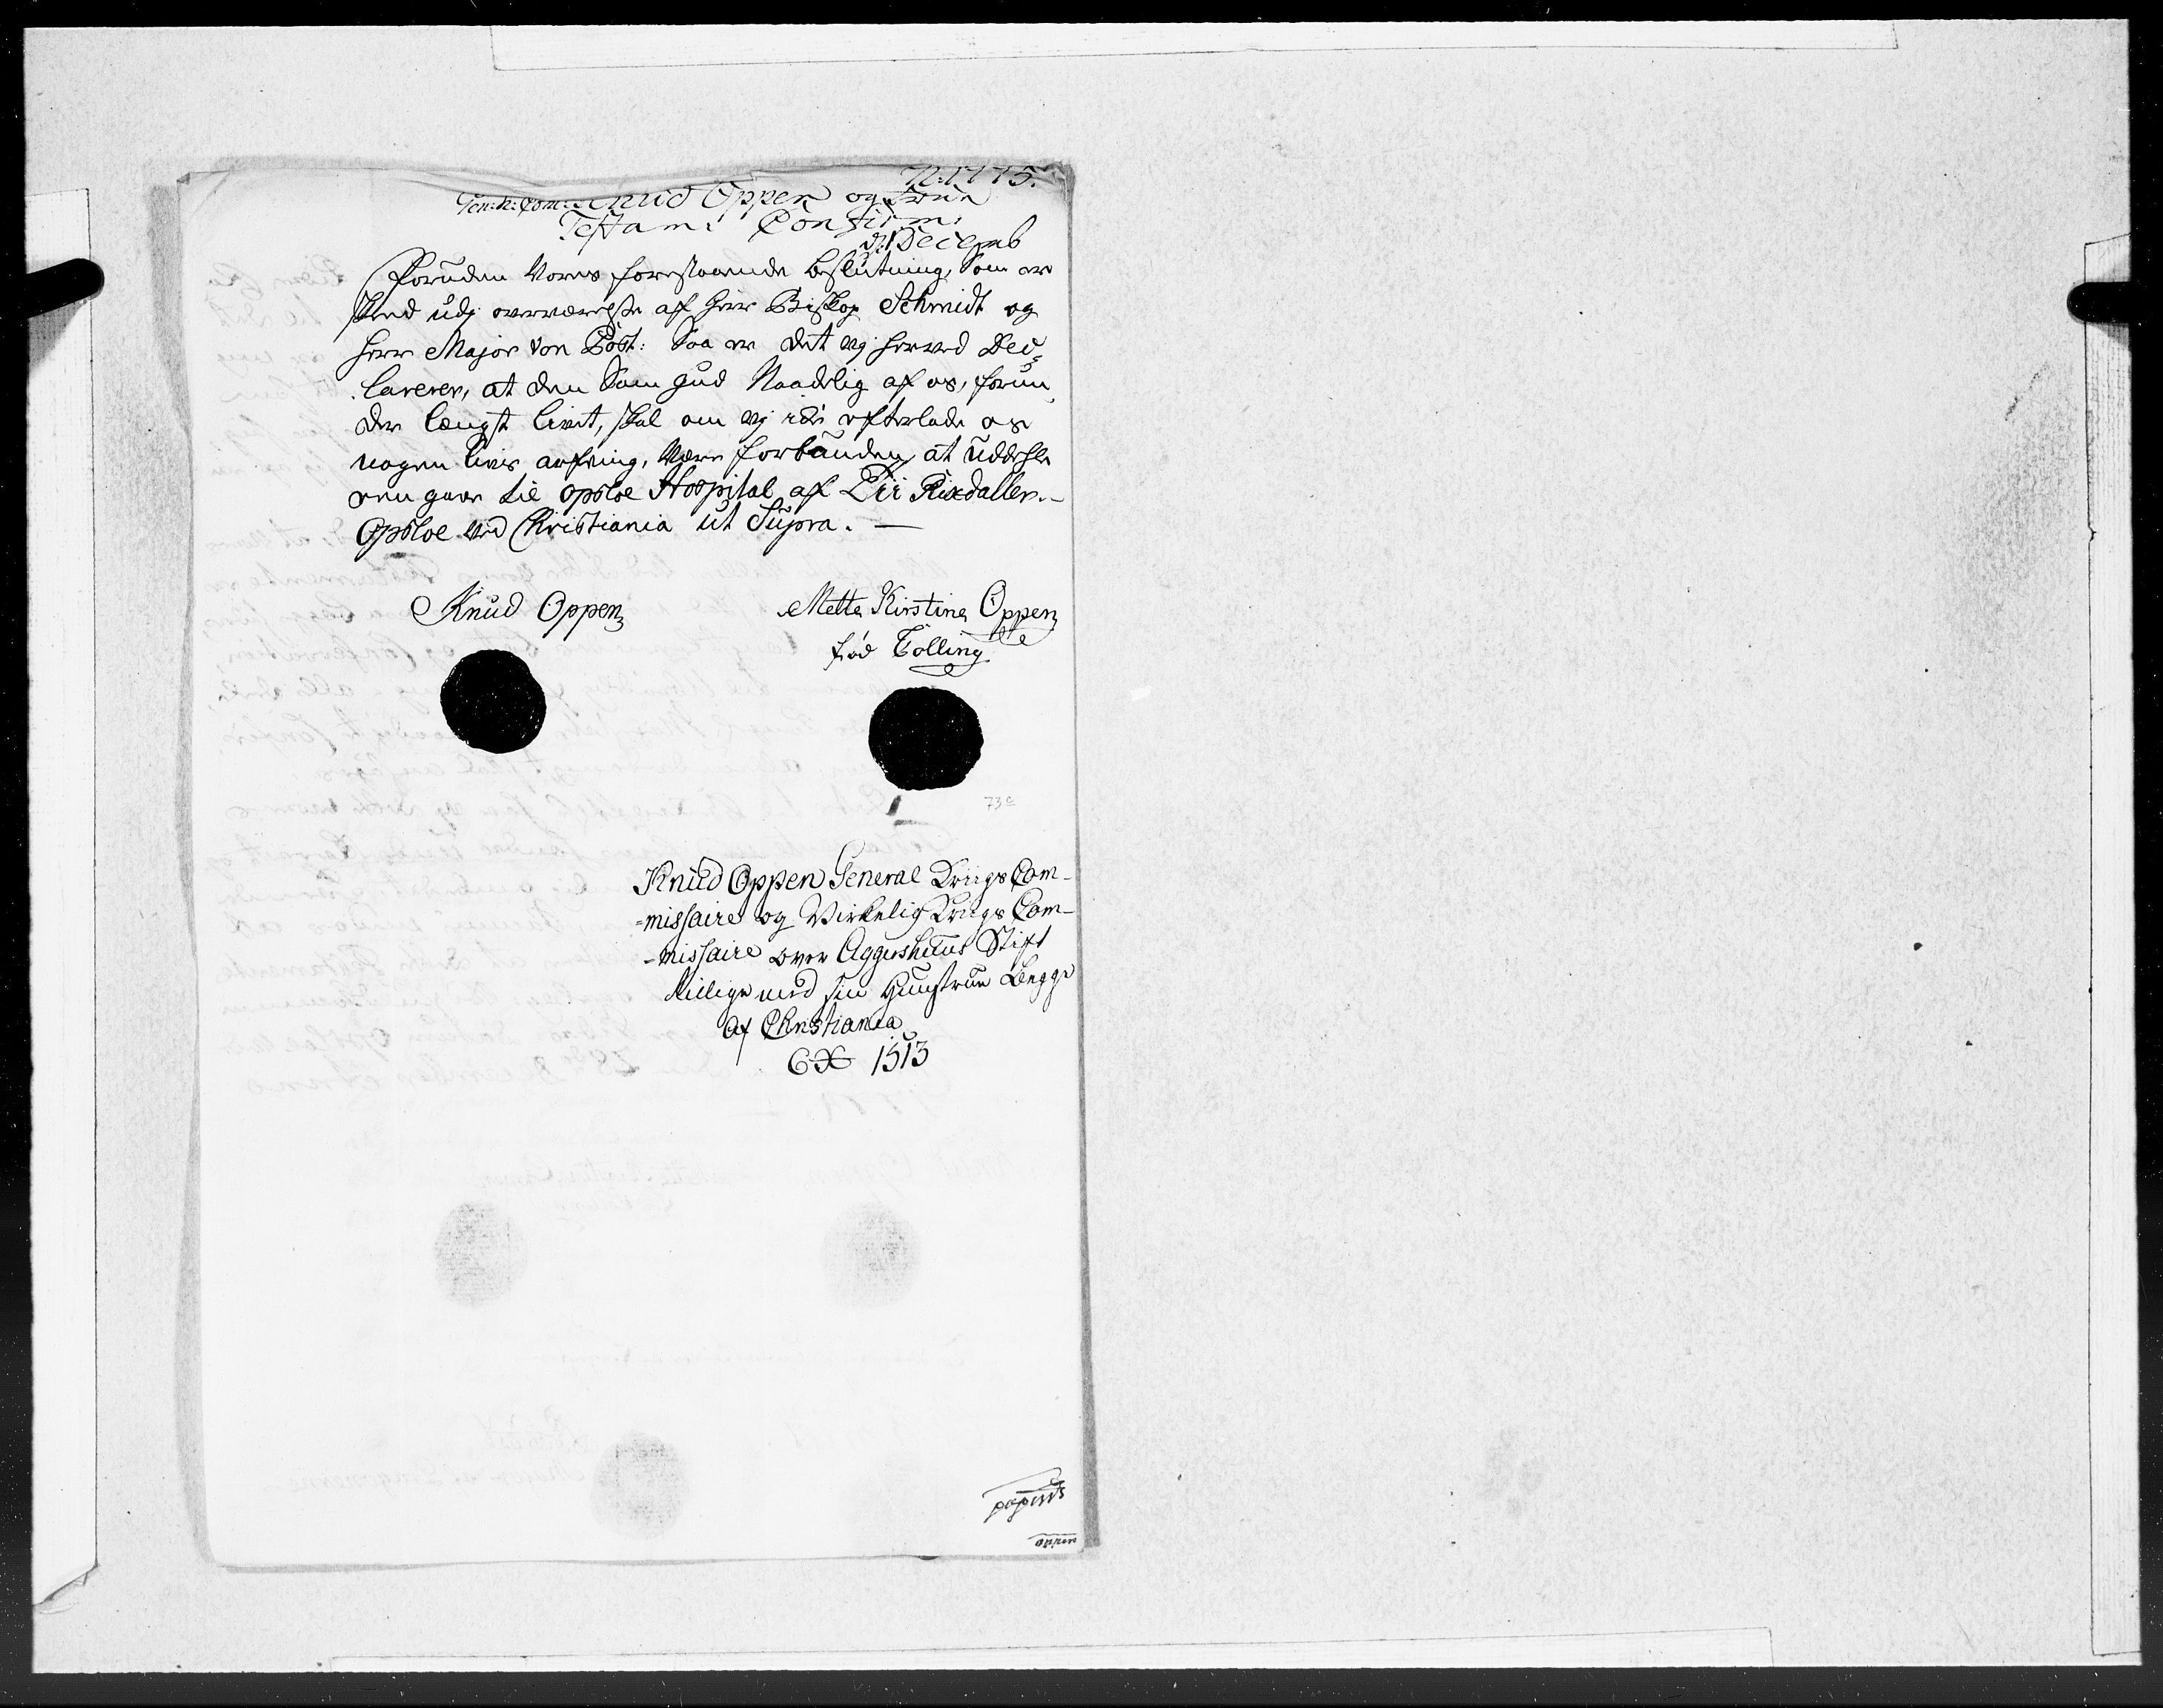 N: 1775.
Gen: K: Com: Knud Oppen og Frue
Testam: Confirm:
d: 1 Decemb
Foruden Vores forestaaende beslutning, Som er
skeed udj overværelse af Herr Biskop Schmidt og
Herr Major von Post: Saa er det vj herved Dec=
larerer, at den Som Gud Naadelig af os, forun
der længst livet, skal om vj icke efterlade os
nogen livs arfving, være forbunden, at uddeele
een gave til Opsloe Hospital af Tii Rixdaller.
Opsloe ved Christiania ut Supra.
Knud Oppen
Mette Kirstine Oppen
föd Tölling
73c
Knud Oppen General Kriigs Com-
=missaire og Virkelig Kriigs Com-
-missaire over Aggershuus Stift
tillige med sin Hustrue Begge
af Christiania
6 X 1513